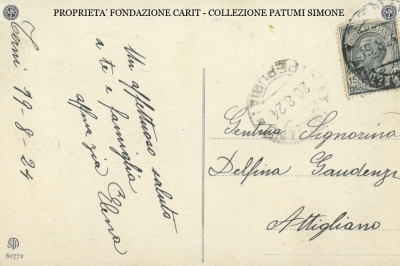 PROPRIETA' FONDAZIONE CARIT - COLLEZIONE PATUMI SIMONE
Terni 19-8-24
Un affettuoso saluto
a te e famiglia
affma zia Elena
20.8.24
15
Gentma Signorina
Delfina Gaudenzi
Attigliano
STA
60772